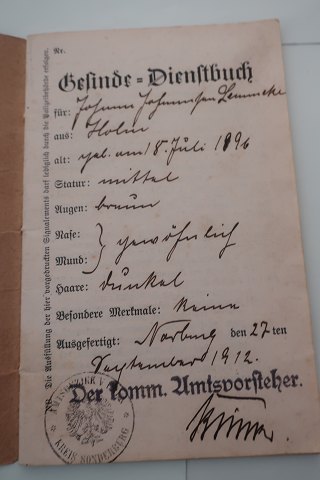 Nr.
Gesinde-Dienstbuch
für: Johann Johannsen Lemmeke
aus: Holm
alt: geb. am 18. Juli 1896
Statur: mittel
Augen: braun
Nase:
Mund: } gewöhnlich
Haare: dunkel
Besondere Merkmale: keine
Ausgefertigt: Norburg den 27ten
September 1912.
Der komm. Amtsvorsteher.
KREIS SONDERBURG
NB. Die Ausfüllung der hier vorgedruckten Signalements darf lediglich durch die Polizeibehörde erfolgen.